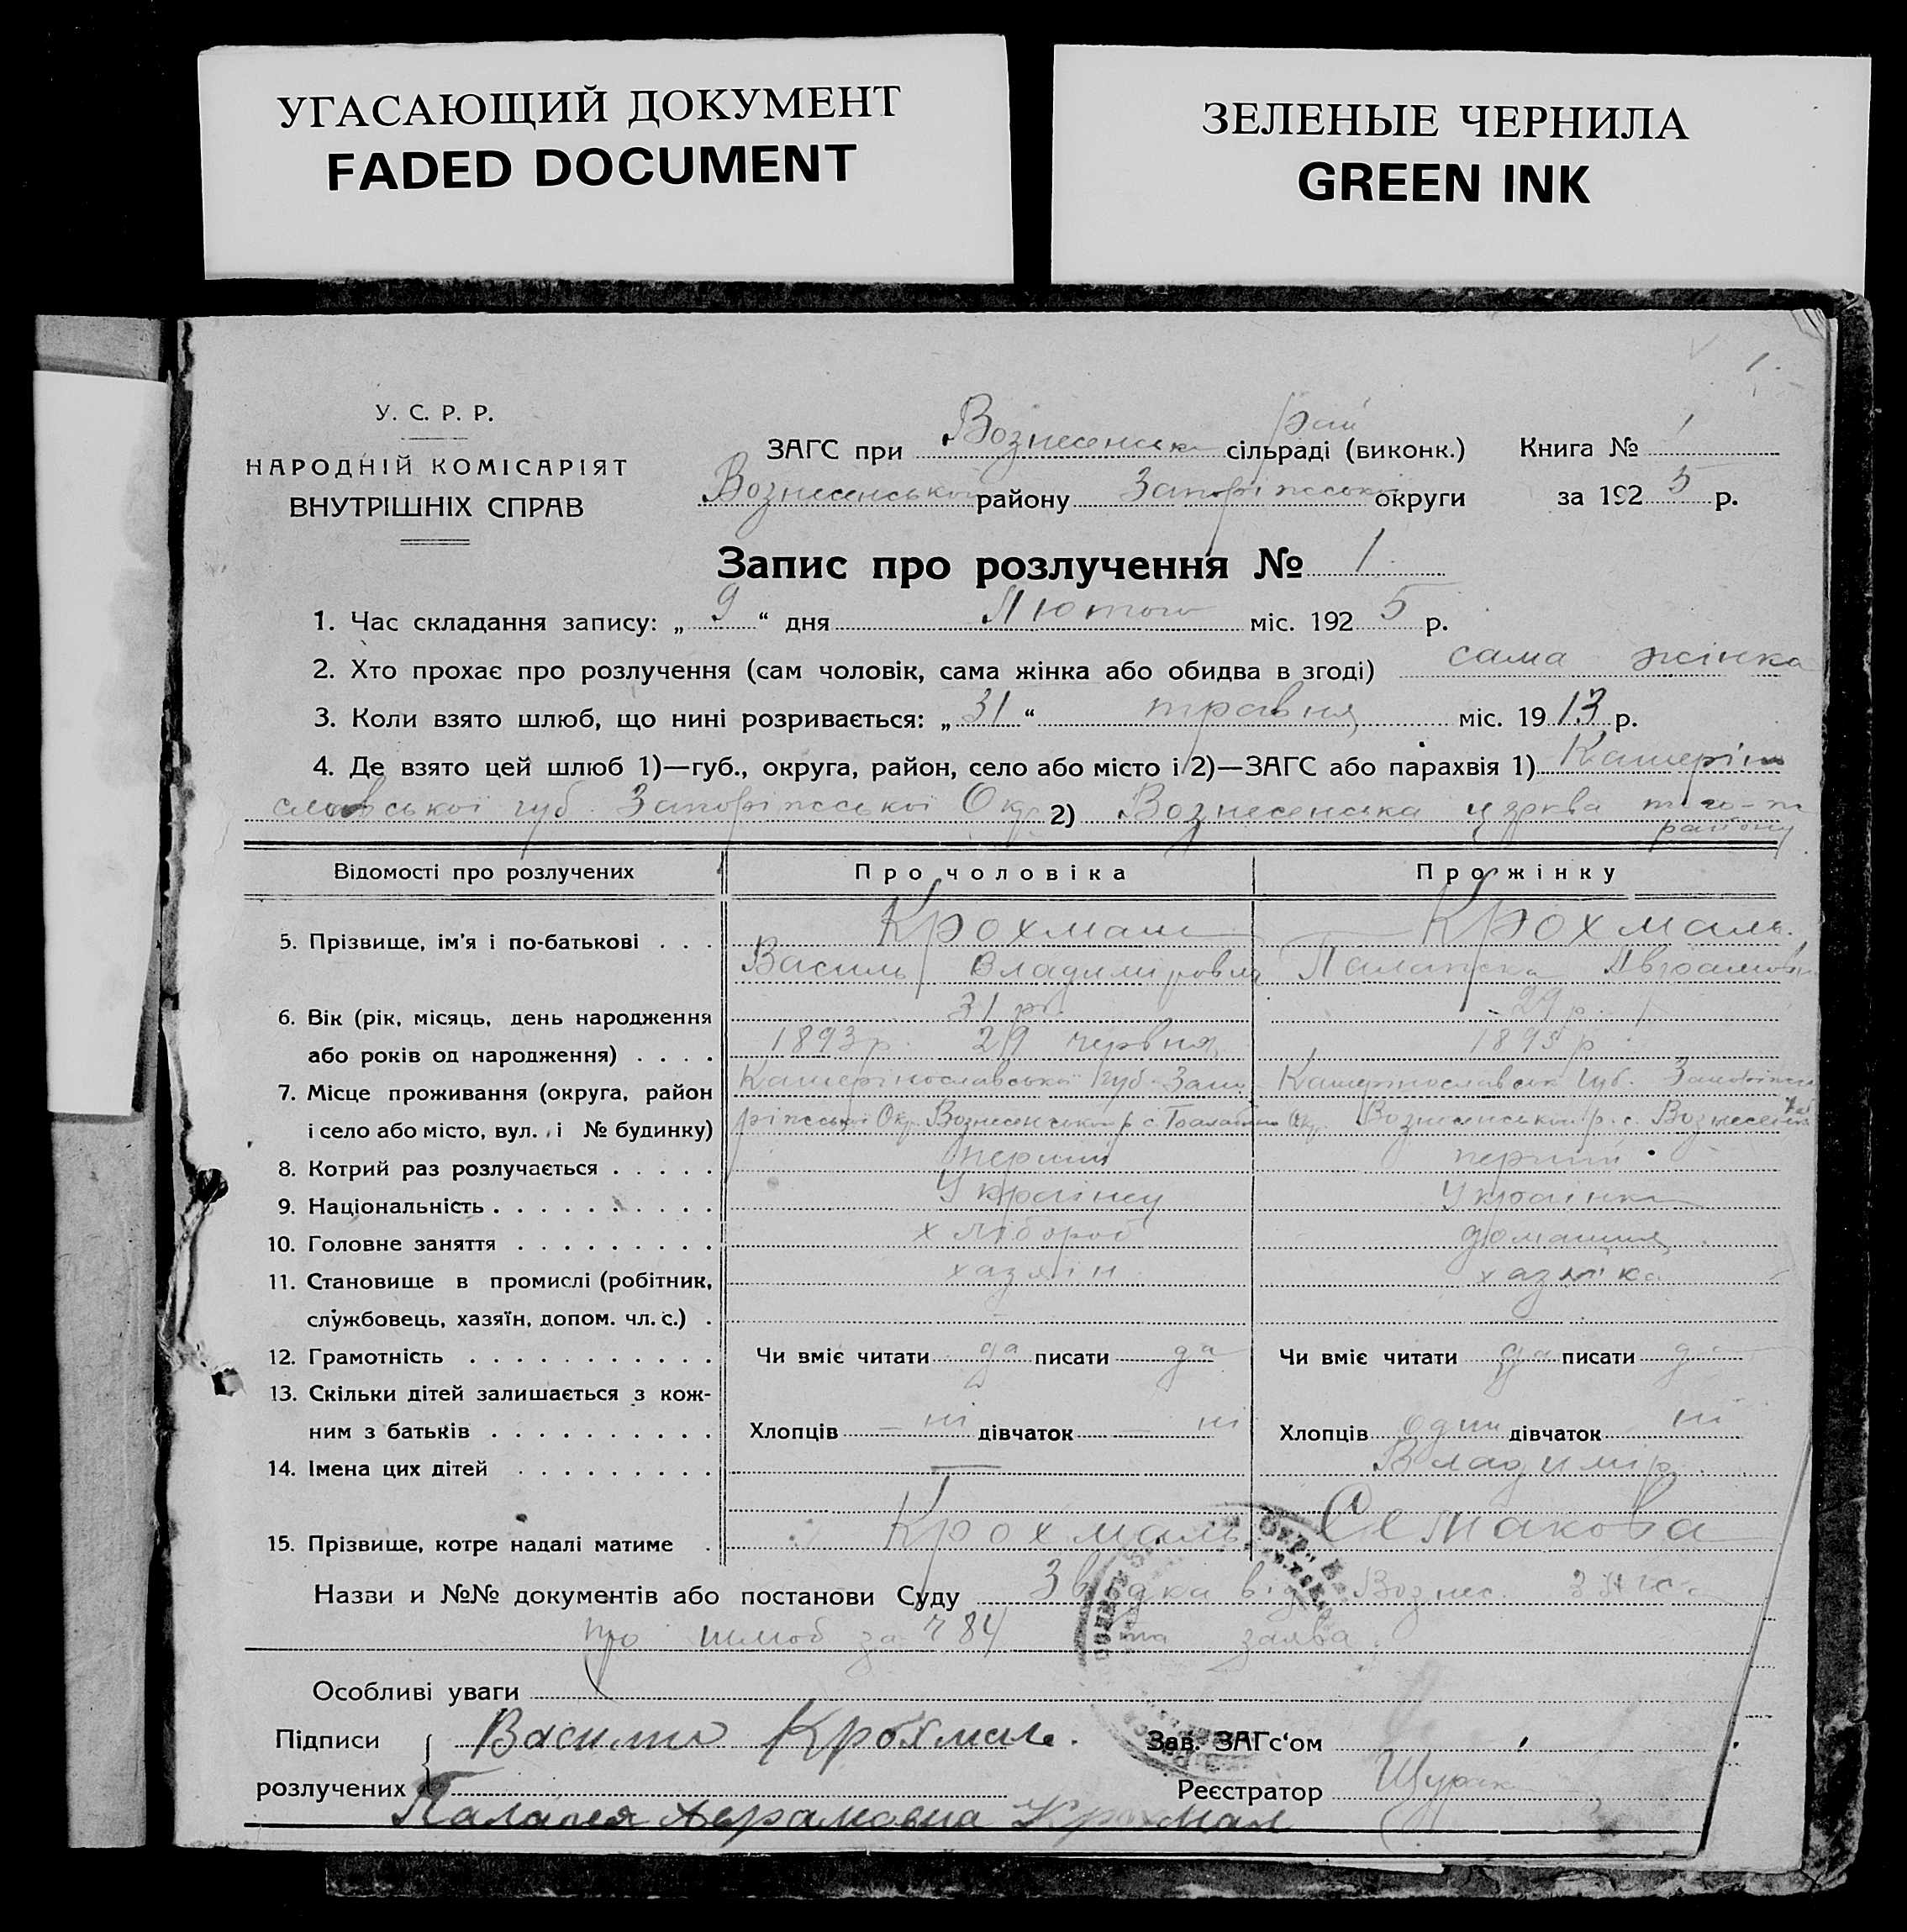 УГАСАЮЩИЙ ДОКУМЕНТ
FADED DOCUMENT
ЗЕЛЕНЫЕ ЧЕРНИЛА
GREEN INK
1.
У. С. Р. Р.
НАРОДНІЙ КОМІСАРІЯТ
ВНУТРІШНІХ СПРАВ
рай
ЗАГС при Вознесенськ сільраді (виконк.) Книга № 1
Вознесенського району Запоріжської округи за 1925 р.
Запис про розлучення № 1.
1. Час складання запису: „ 9 “ дня Лютого міс. 1925 р.
2. Хто прохає про розлучення (сам чоловік, сама жінка або обидва в згоді) сама жінка
3. Коли взято шлюб, що нині розривається: „ 31 “ травня міс. 1913 р.
4. Де взято цей шлюб 1)—губ., округа, район, село або місто і 2)—ЗАГС або парахвія 1) Катеріно
славської губ. Запоріжської Окр 2) Вознесенська церква того-ж
району
Відомості про розлучених Про чоловіка Про жінку
5. Прізвище, ім'я і по-батькові . . . Крохмаль Крохмаль.
Василь Владимірович Палажка Авраамовна
6. Вік (рік, місяць, день народження 31 р. 29 р.
або років од народження) . . . . 1893 р. 29 червня 1895 р.
7. Місце проживання (округа, район Катерінославської губ. Запо Катерінославськ губ. Запоріжськ
і село або місто, вул. і № будинку) ріжської Окр. Вознесенського р. с. Окр. Вознесенського р. с. Вознесен
8. Котрий раз розлучається . . . . . перший перший
9. Національність . . . . . . . . . . Українец Українка
10. Головне заняття . . . . . . . . . хлібороб домашня
11. Становище в промислі (робітник, хазяїн хазяйка
службовець, хазяїн, допом. чл. с.) .
12. Грамотність . . . . . . . . . . . Чи вміє читати да писати да Чи вміє читати да писати да
13. Скільки дітей залишається з кож-
ним з батьків . . . . . . . . . . Хлопців — ні дівчаток — ні Хлопців один дівчаток ні
14. Імена цих дітей . . . . . . . . . — Владимір
15. Прізвище, котре надалі матиме . Крохмаль Семакова
Назви и №№ документів або постанови Суду Звідка від Вознес. Загса
про шлюб за ч 84 та заява.
Особливі уваги
Підписи Василь Крохмаль. Зав. ЗАГс‘ом
розлучених Реєстратор Щурак
Палагея Аврамовна Крохмал